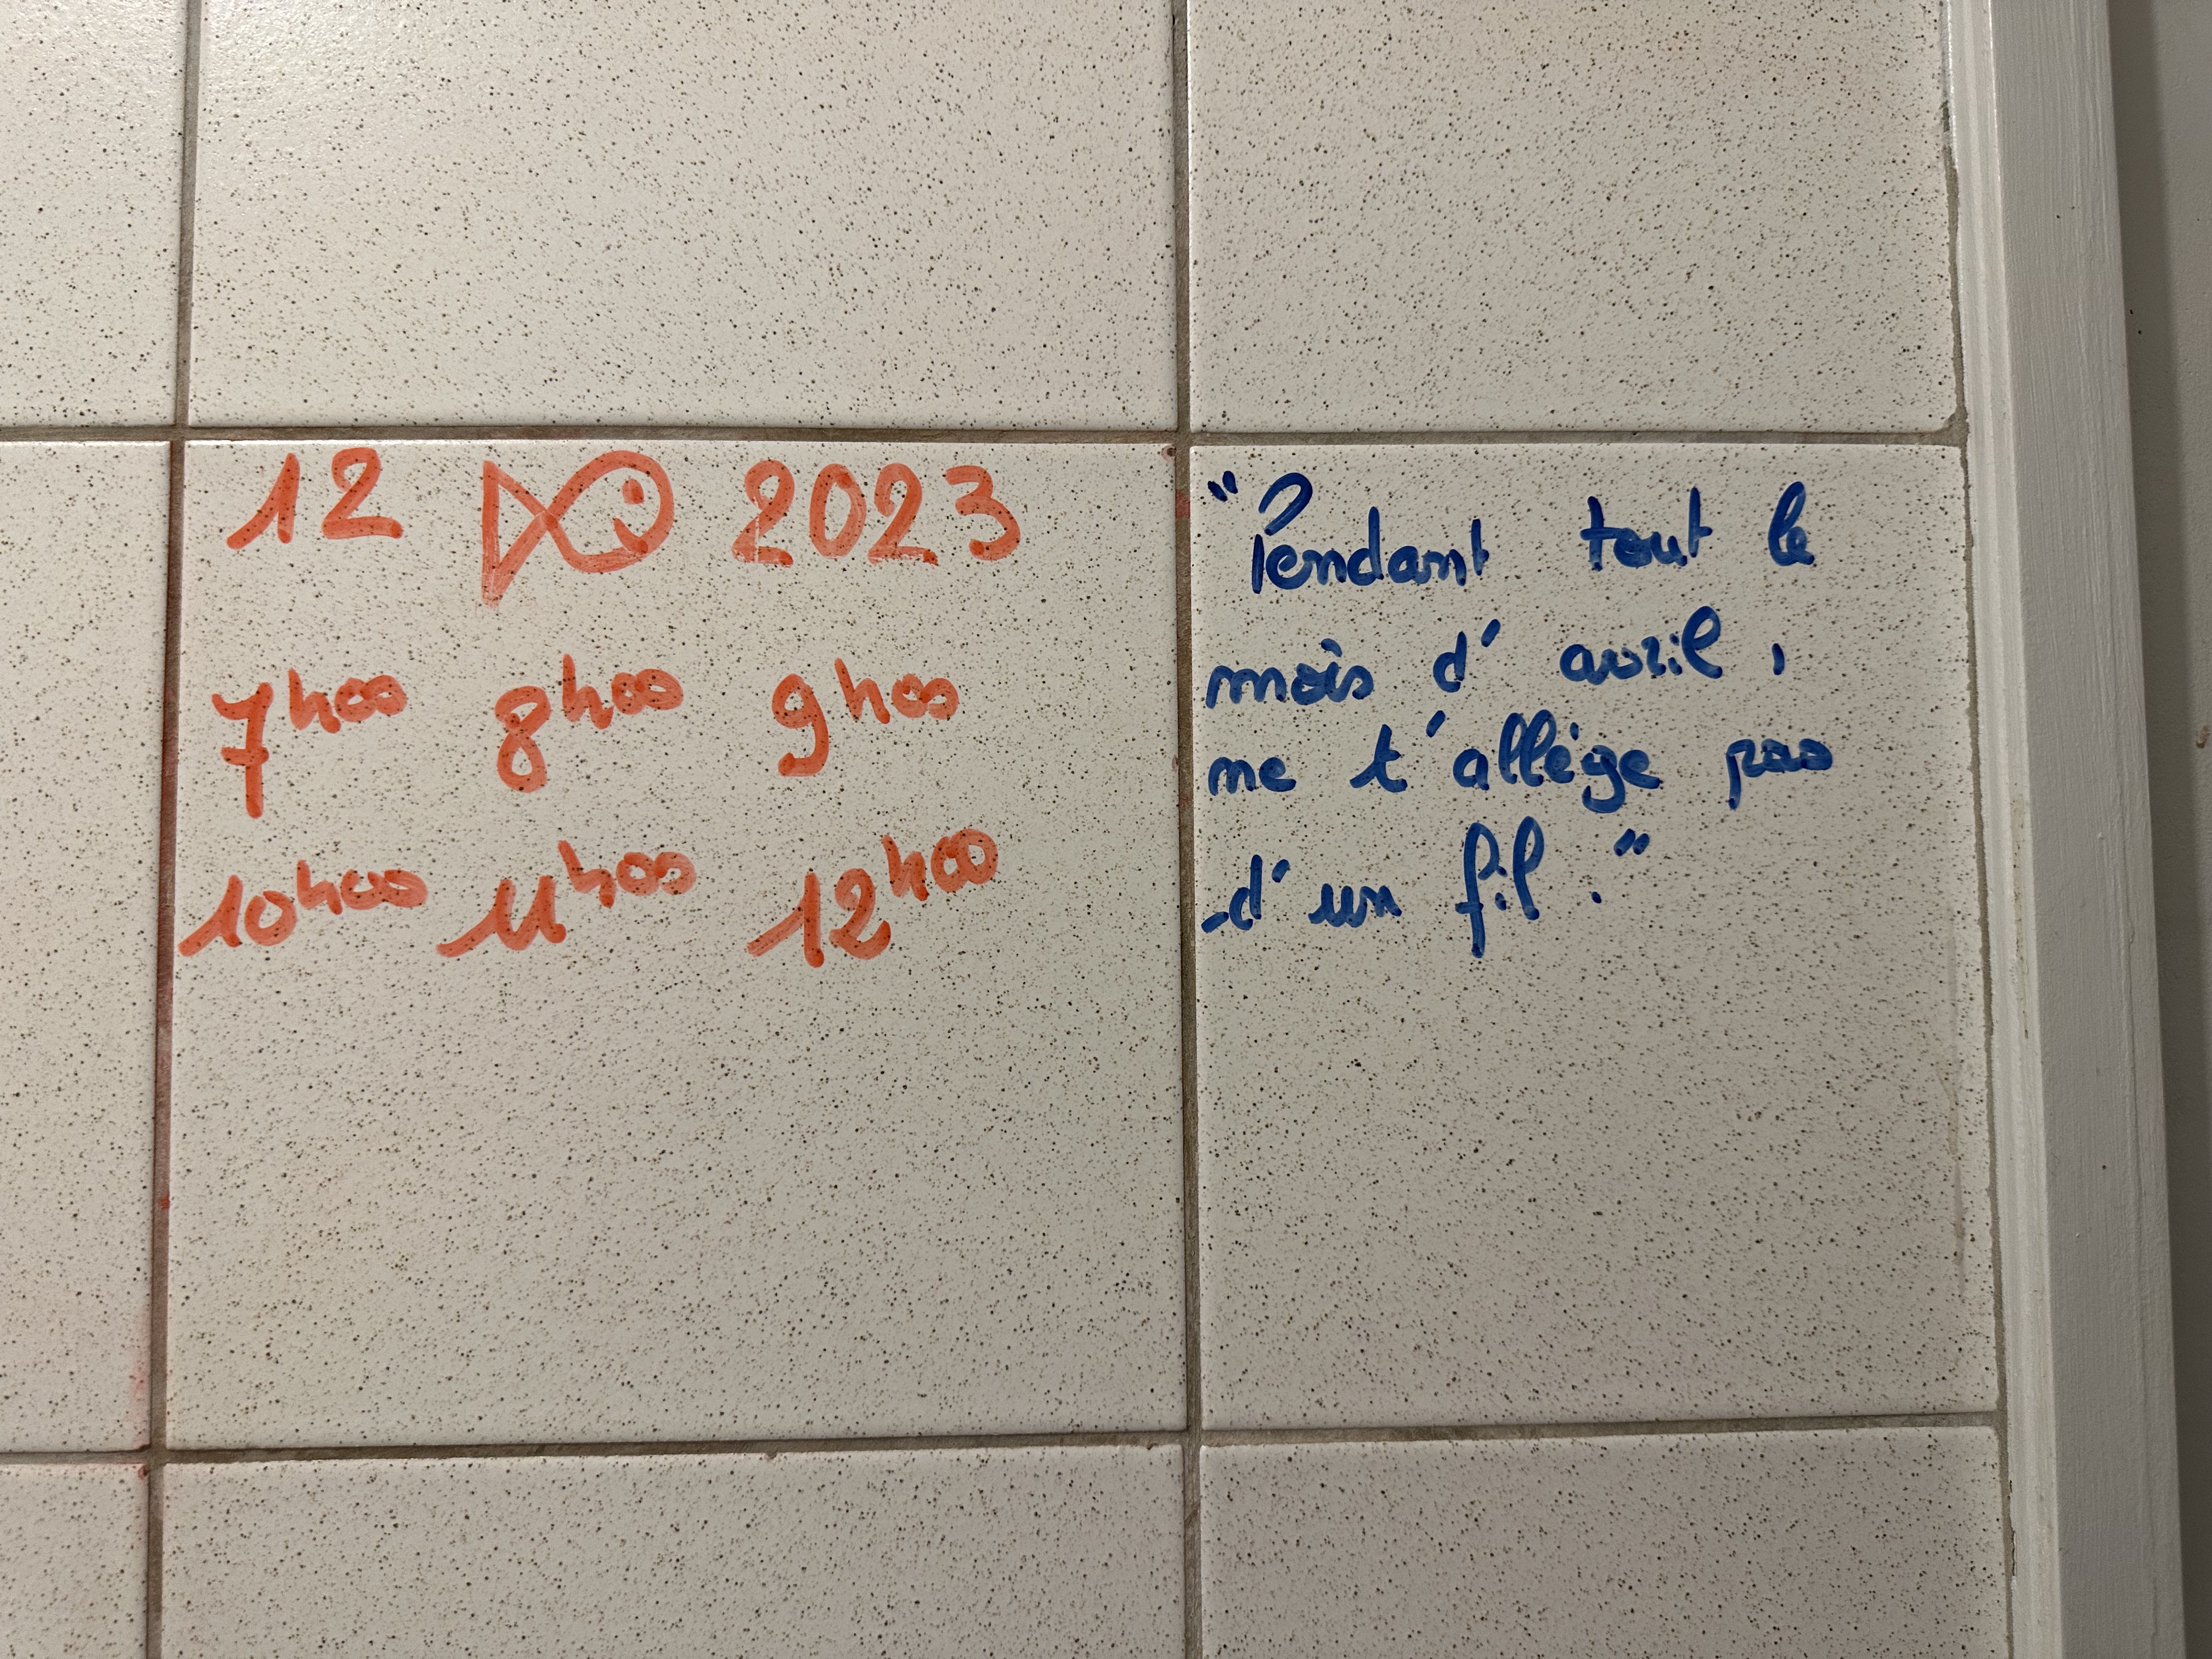 12 2023
7h00 8h00 9h00
10h00 11h00 12h00
"Pendant tout le
mois d'avril,
ne t'allège pas
d'un fil."